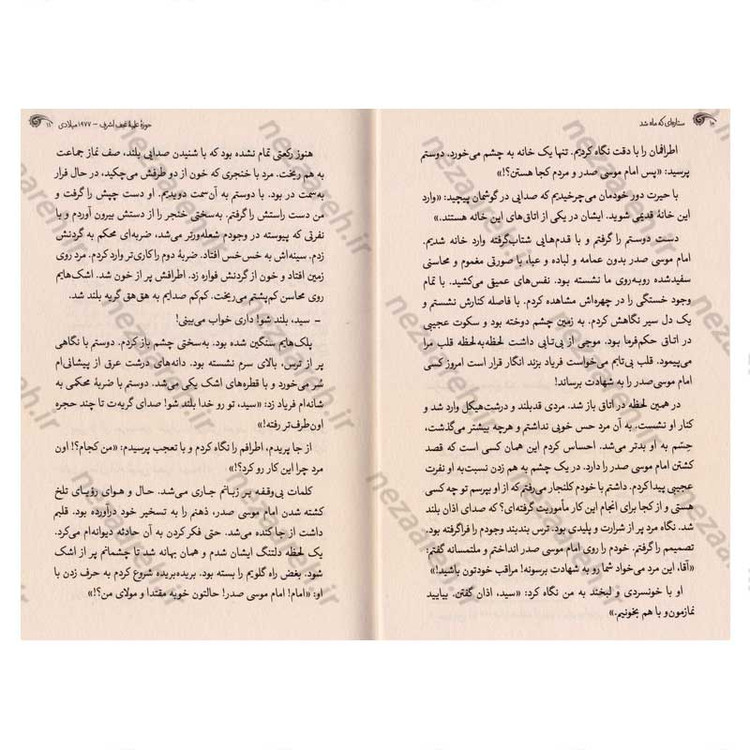 ۱۰ ستاره‌ای که ماه شد
اطرافمان را با دقت نگاه کردیم. تنها یک خانه به چشم می‌خورد. دوستم
پرسید: «پس امام موسی صدر و مردم کجا هستن؟!»
با حیرت دور خودمان می‌چرخیدیم که صدایی در گوشمان پیچید: «وارد
این خانهٔ قدیمی شوید. ایشان در یکی از اتاق‌های این خانه هستند.»
دست دوستم را گرفتم و با قدم‌هایی شتاب‌گرفته وارد خانه شدیم.
امام موسی صدر بدون عمامه و لباده و عبا، با صورتی مغموم و محاسنی
سفیدشده روبه‌روی ما نشسته بود. نفس‌های عمیقی می‌کشید. با تمام
وجود خستگی را در چهره‌اش مشاهده کردم. با فاصله کنارش نشستم و
یک دل سیر نگاهش کردم. به زمین چشم دوخته بود و سکوت عجیبی
در اتاق حکم‌فرما بود. موجی از بی‌تابی داشت لحظه‌به‌لحظه قلب مرا
می‌پیمود. قلب بی‌تابم می‌خواست فریاد بزند انگار قرار است امروز کسی
امام موسی صدر را به شهادت برساند!
در همین لحظه در اتاق باز شد. مردی قدبلند و درشت‌هیکل وارد شد و
کنار او نشست. به آن مرد حس خوبی نداشتم و هرچه بیشتر می‌گذشت،
حسّم به او بدتر می‌شد. احساس کردم این همان کسی است که قصد
کشتن امام موسی صدر را دارد. در یک چشم به هم زدن نسبت‌به او نفرت
عجیبی پیدا کردم. داشتم با خودم کلنجار می‌رفتم که از او بپرسم تو چه کسی
هستی و از کجا برای انجام این کار مأموریت گرفته‌ای؟ که صدای اذان بلند
شد. نگاه مرد پر از شرارت و پلیدی بود. ترس بندبند وجودم را فراگرفته بود.
تصمیمم را گرفتم. خودم را روی امام موسی صدر انداختم و ملتمسانه گفتم:
«آقا، این مرد می‌خواد شما رو به شهادت برسونه! مراقب خودتون باشید!»
او با خونسردی و لبخند به من نگاه کرد: «سید، اذان گفتن. بیایید
نمازمون‌و با هم بخونیم.»
حوزهٔ علمیهٔ نجف اشرف – ۱۹۷۷ میلادی ۱۱
هنوز رکعتی تمام نشده بود که با شنیدن صدایی بلند، صف نماز جماعت
به هم ریخت. مرد با خنجری که خون از دو طرفش می‌چکید، در حال فرار
به‌سمت در بود. با دوستم به آن‌سمت دویدیم. او دست چپش را گرفت و
من دست راستش را گرفتم. به‌سختی خنجر را از دستش بیرون آوردم و با
نفرتی که پیوسته در وجودم شعله‌ورتر می‌شد، ضربه‌ای محکم به گردنش
زدم. سینه‌اش به خس خس افتاد. ضربهٔ دوم را کاری‌تر وارد کردم. مرد روی
زمین افتاد و خون از گردنش فواره زد. اطرافش پر از خون شد. اشک‌هایم
روی محاسن کم‌پشتم می‌ریخت. کم‌کم صدایم به هق‌هق گریه بلند شد.
– سید، بلند شو! داری خواب می‌بینی!
پلک‌هایم سنگین شده بود. به‌سختی چشم باز کردم. دوستم با نگاهی
پر از ترس، بالای سرم نشسته بود. دانه‌های درشت عرق از پیشانی‌ام
سُر می‌خورد و با قطره‌های اشک یکی می‌شد. دوستم با ضربهٔ محکمی به
شانه‌ام فریاد زد: «سید، تو رو خدا بلند شو! صدای گریه‌ت تا چند حجره
اون‌طرف‌تر رفته!»
از جا پریدم، اطرافم را نگاه کردم و با تعجب پرسیدم: «من کجام؟! اون
مرد چرا این کار رو کرد؟!»
کلمات بی‌وقفه بر زبانم جاری می‌شد. حال و هوای رؤیای تلخ
کشته شدن امام موسی صدر، ذهنم را به تسخیر خود درآورده بود. قلبم
داشت از جا کنده می‌شد. حتی فکر کردن به آن حادثه دیوانه‌ام می‌کرد.
یک لحظه دلتنگ ایشان شدم و همان بهانه شد تا چشمانم پر از اشک
شود. بغض راه گلویم را بسته بود. بریده‌بریده شروع کردم به حرف زدن با
او: «امام! امام موسی صدر! حالتون خوبه مقتدا و مولای من؟!»
nezaareh.ir